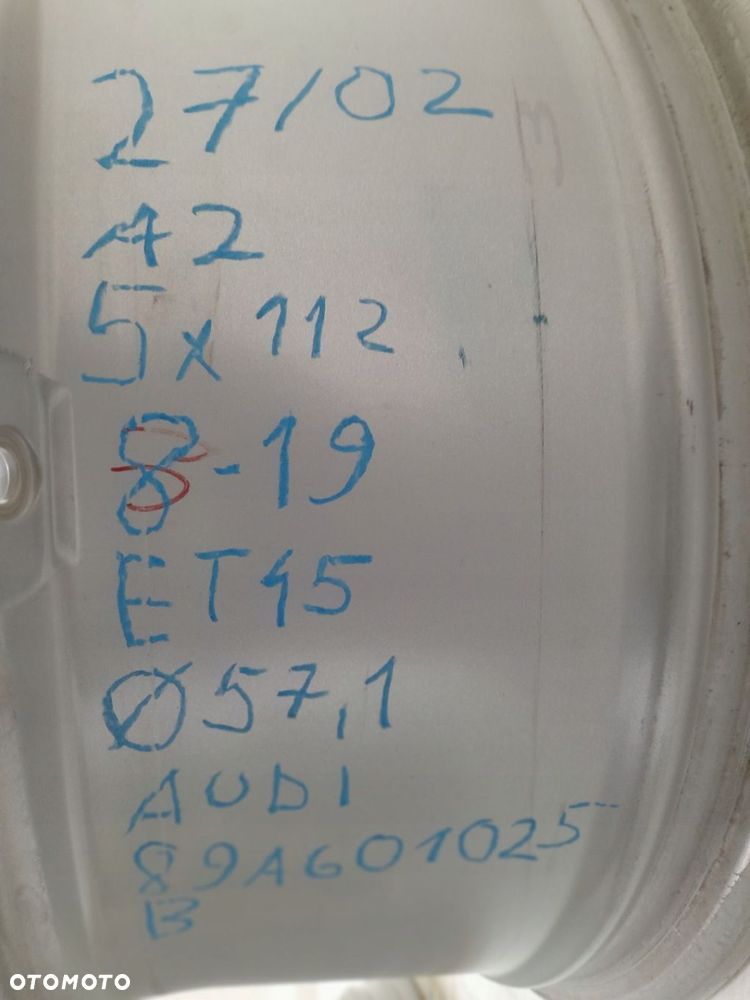 27/02
A2
5x112
8-19
ET45
Ø57,1
AUDI
89A601025
B
OTOMOTO